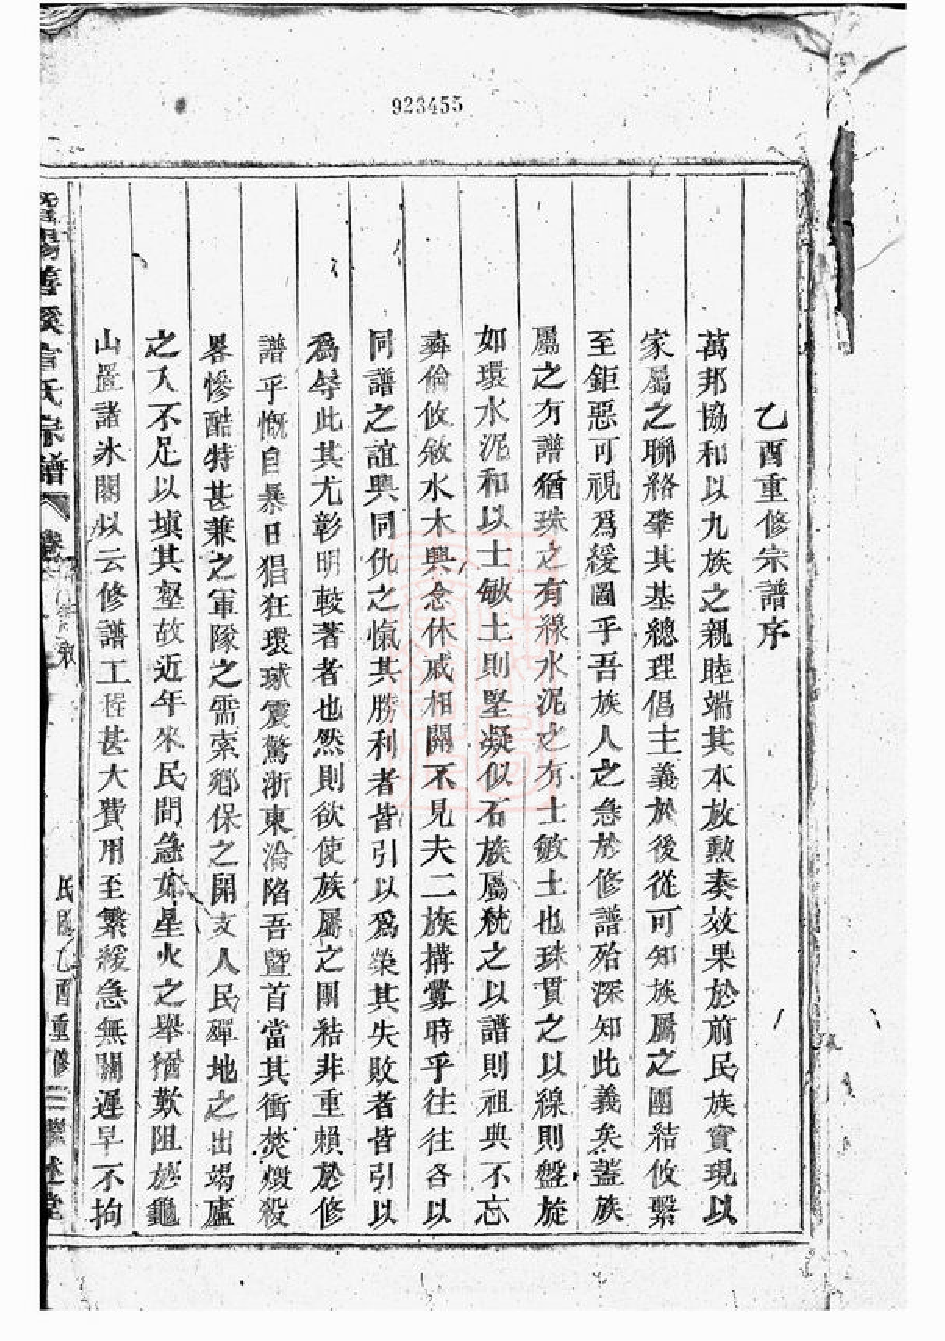 923455
乙酉重修宗譜序
萬邦協和以九族之親睦端其本放勲奏效果於前民族實現以
家屬之聯絡肇其基總理倡主義於後從可知族屬之團結攸繫
至鉅惡可視爲緩圖乎吾族人之急於修譜殆深知此義矣蓋族
屬之有譜猶珠之有線水泥之有士敏土也珠貫之以線則盤旋
如環水泥和以士敏土則堅凝似石族屬統之以譜則祖典不忘
彝倫攸敘水木興念休戚相關不見夫二族搆釁時乎往往各以
同譜之誼興同仇之愾其勝利者皆引以爲榮其失敗者皆引以
爲辱此其尤彰明較著者也然則欲使族屬之團結非重賴於修
譜乎慨自暴日猖狂環球震驚浙東淪陷吾暨首當其衝焚燬殺
畧慘酷特甚兼之軍隊之需索鄉保之開支人民殫地之出竭廬
之入不足以填其壑故近年來民間急如星火之舉猶歎阻於龜
山置諸氷閣似云修譜工程甚大費用至繁緩急無關遲早不拘
暨陽善溪官氏宗譜 卷
民國乙酉重修 述堂